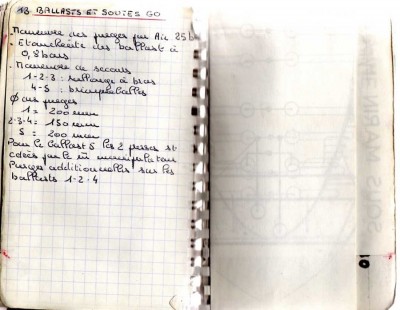 18. BALLASTS ET SOUTES GO
- Manœuvre des purges par Air 25 b
- Etanchéité des ballast à
0,8 bars
- Manœuvre de secours
1-2-3 : rallonge à bras
4-5 :
Ø des purges
1 = 200 mm
2-3-4 = 150 mm
5 = 200 mm
Pour le ballast 5 les 2 purges st
cdées par le m̂ manipulateur
Purges additionnelles sur les
ballasts 1-2-4